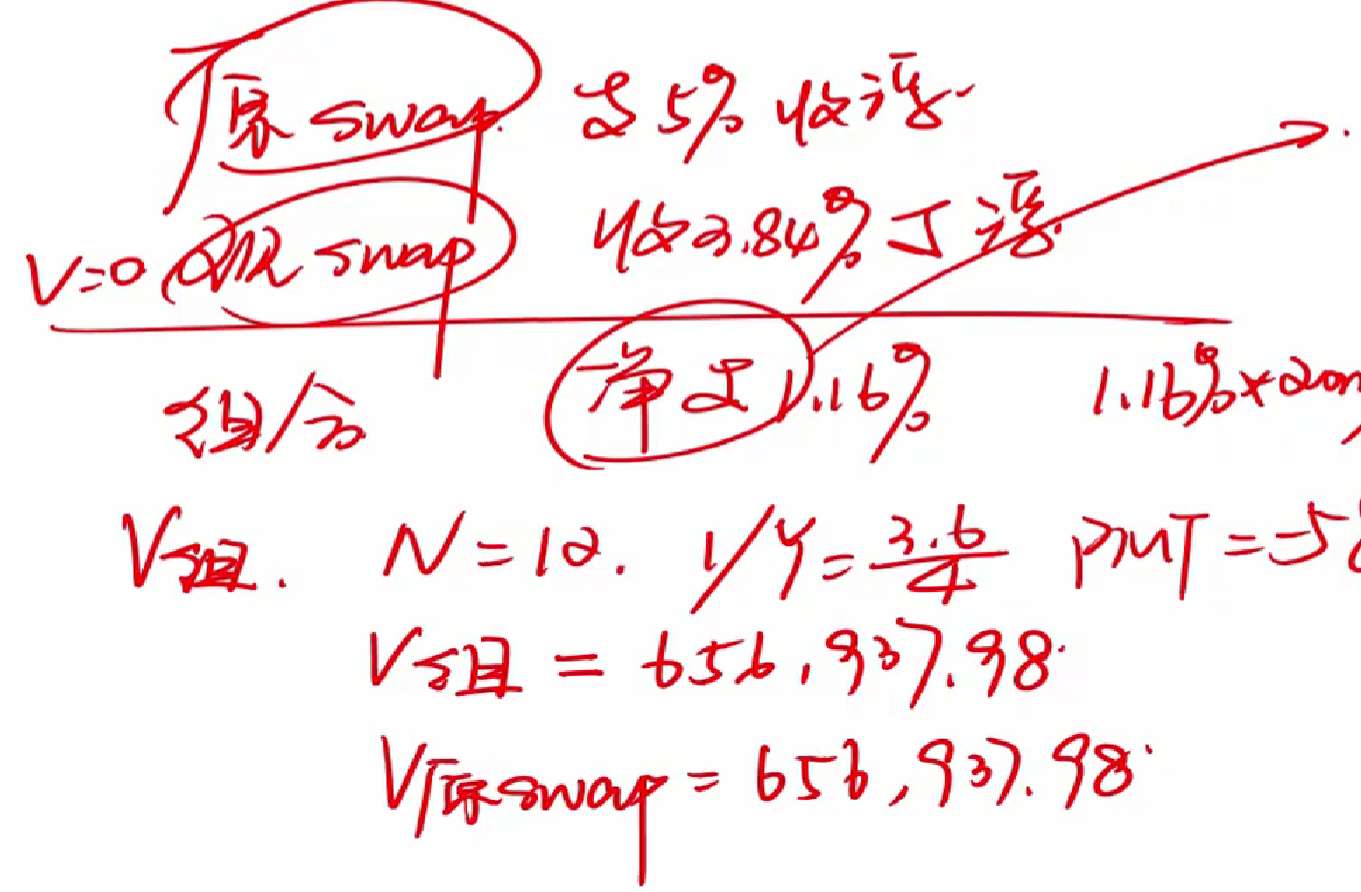 原 swap 支 5% 收浮
V=0 现 swap 收3.84% 支浮
组合 净支 1.16% 1.16%×20m
V组. N=12. I/Y=3.6/4 PMT=-58
V组 = 656,937.98
V原swap = 656,937.98